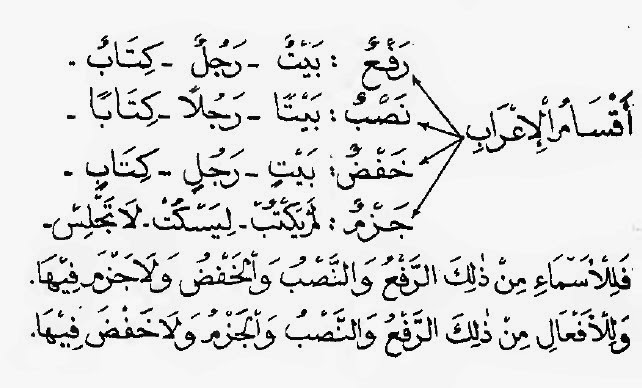 أَقْسَامُ الْإِعْرَابِ
رَفْعٌ : بَيْتٌ - رَجُلٌ - كِتَابٌ .
نَصْبٌ : بَيْتًا - رَجُلًا - كِتَابًا -
خَفْضٌ : بَيْتٍ - رَجُلٍ - كِتَابٍ -
جَزْمٌ : لَمْ يَكْتُبْ - لِيَسْكُتْ - لَا تَجْلِسْ -
فَلِلْأَسْمَاءِ مِنْ ذٰلِكَ الرَّفْعُ وَالنَّصْبُ وَالْخَفْضُ وَلَا جَزْمَ فِيْهَا.
وَلِلْأَفْعَالِ مِنْ ذٰلِكَ الرَّفْعُ وَالنَّصْبُ وَالْجَزْمُ وَلَا خَفْضَ فِيْهَا.